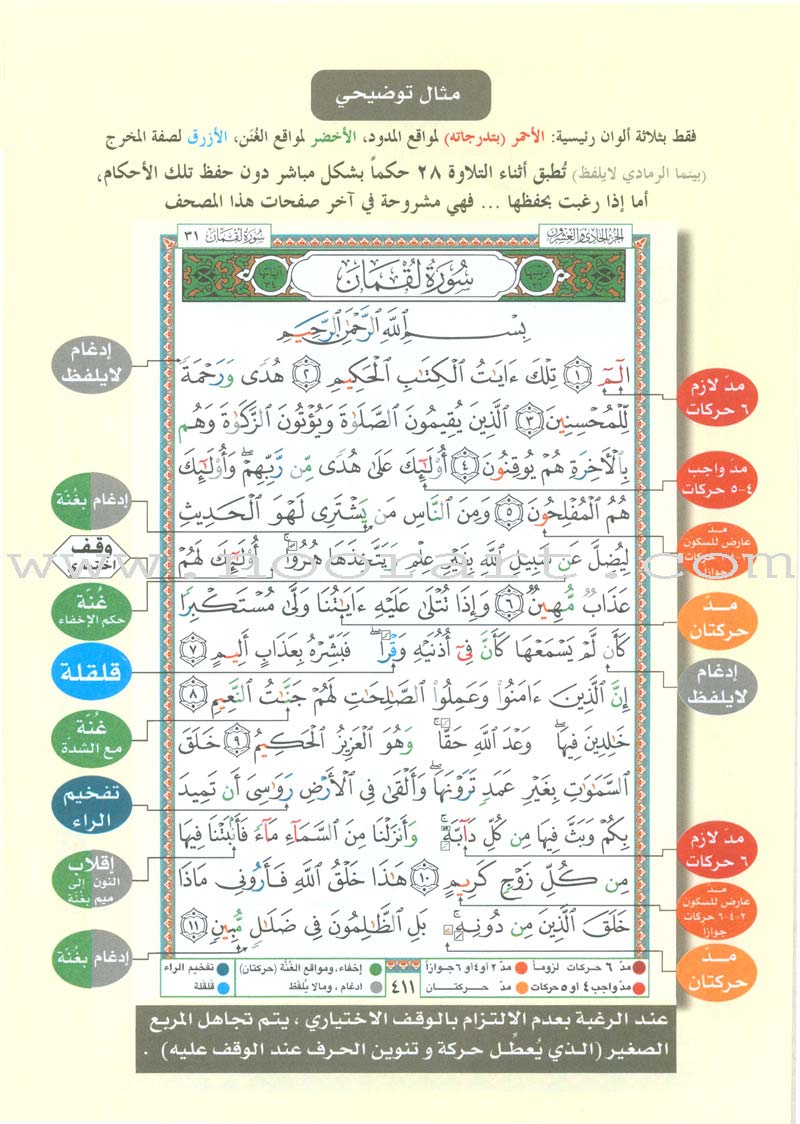 مثال توضيحي
فقط بثلاثة ألوان رئيسية: الأحمر (بتدرجاته) لمواقع المدود، الأخضر لمواقع الغُنَن، الأزرق لصفة المخرج
(بينما الرمادي لايلفظ) تُطبق أثناء التلاوة ٢٨ حكماً بشكل مباشر دون حفظ تلك الأحكام،
أما إذا رغبت بحفظها ... فهي مشروحة في آخر صفحات هذا المصحف
الجزء الحادي والعشرون
سورة لقمان ٣١
سُورَةُ لُقْمَانَ
بِسْمِ اللَّهِ الرَّحْمَٰنِ الرَّحِيمِ
الٓمٓ ١ تِلْكَ ءَايَٰتُ الْكِتَٰبِ الْحَكِيمِ ٢ هُدًى وَرَحْمَةً
لِّلْمُحْسِنِينَ ٣ الَّذِينَ يُقِيمُونَ الصَّلَوٰةَ وَيُؤْتُونَ الزَّكَوٰةَ وَهُم
بِالْأَخِرَةِ هُمْ يُوقِنُونَ ٤ أُوْلَٰٓئِكَ عَلَىٰ هُدًى مِّن رَّبِّهِمْ وَأُوْلَٰٓئِكَ
هُمُ الْمُفْلِحُونَ ٥ وَمِنَ النَّاسِ مَن يَشْتَرِى لَهْوَ الْحَدِيثِ
لِيُضِلَّ عَن سَبِيلِ اللَّهِ بِغَيْرِ عِلْمٍ وَيَتَّخِذَهَا هُزُوًا أُوْلَٰٓئِكَ لَهُمْ
عَذَابٌ مُّهِينٌ ٦ وَإِذَا تُتْلَىٰ عَلَيْهِ ءَايَٰتُنَا وَلَّىٰ مُسْتَكْبِرًا
كَأَن لَّمْ يَسْمَعْهَا كَأَنَّ فِىٓ أُذُنَيْهِ وَقْرًا فَبَشِّرْهُ بِعَذَابٍ أَلِيمٍ ٧
إِنَّ الَّذِينَ ءَامَنُوا وَعَمِلُوا الصَّٰلِحَٰتِ لَهُمْ جَنَّٰتُ النَّعِيمِ ٨
خَٰلِدِينَ فِيهَا وَعْدَ اللَّهِ حَقًّا وَهُوَ الْعَزِيزُ الْحَكِيمُ ٩ خَلَقَ
السَّمَٰوَٰتِ بِغَيْرِ عَمَدٍ تَرَوْنَهَا وَأَلْقَىٰ فِى الْأَرْضِ رَوَٰسِىَ أَن تَمِيدَ
بِكُمْ وَبَثَّ فِيهَا مِن كُلِّ دَآبَّةٍ وَأَنزَلْنَا مِنَ السَّمَآءِ مَآءً فَأَنۢبَتْنَا فِيهَا
مِن كُلِّ زَوْجٍ كَرِيمٍ ١٠ هَٰذَا خَلْقُ اللَّهِ فَأَرُونِى مَاذَا
خَلَقَ الَّذِينَ مِن دُونِهِ بَلِ الظَّٰلِمُونَ فِى ضَلَٰلٍ مُّبِينٍ ١١
إدغام
لايلفظ
إدغام بغُنّة
وقف
إختياري
غُنّة
حكم الإخفاء
قلقلة
غُنّة
مع الشدة
تفخيم
الراء
إقلاب
النون إلى
ميم بغُنّة
إدغام بغُنّة
مدّ لازم
٦ حركات
مدّ واجب
٤-٥ حركات
مدّ
عارض للسكون
حركات
جوازاً
مدّ
حركتان
إدغام
لايلفظ
مدّ لازم
٦ حركات
مدّ
عارض للسكون
٢-٤-٦ حركات
جوازاً
مدّ
حركتان
مدّ ٦ حركات لزوماً مدّ ٢ أو ٤ أو ٦ جوازاً
مدّ واجب ٤ أو ٥ حركات مدّ حركتان
٤١١
إخفاء، ومواقع الغُنَّة (حركتان) تفخيم الراء
ادغام، ومالا يُلفَظ قلقلة
عند الرغبة بعدم الالتزام بالوقف الاختياري، يتم تجاهل المربع
الصغير (الذي يُعطِّل حركة و تنوين الحرف عند الوقف عليه).
www.noorart.com